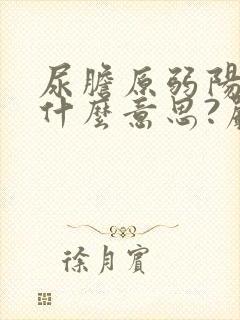 尿膽原弱陽
什麼意思?
徐月賓